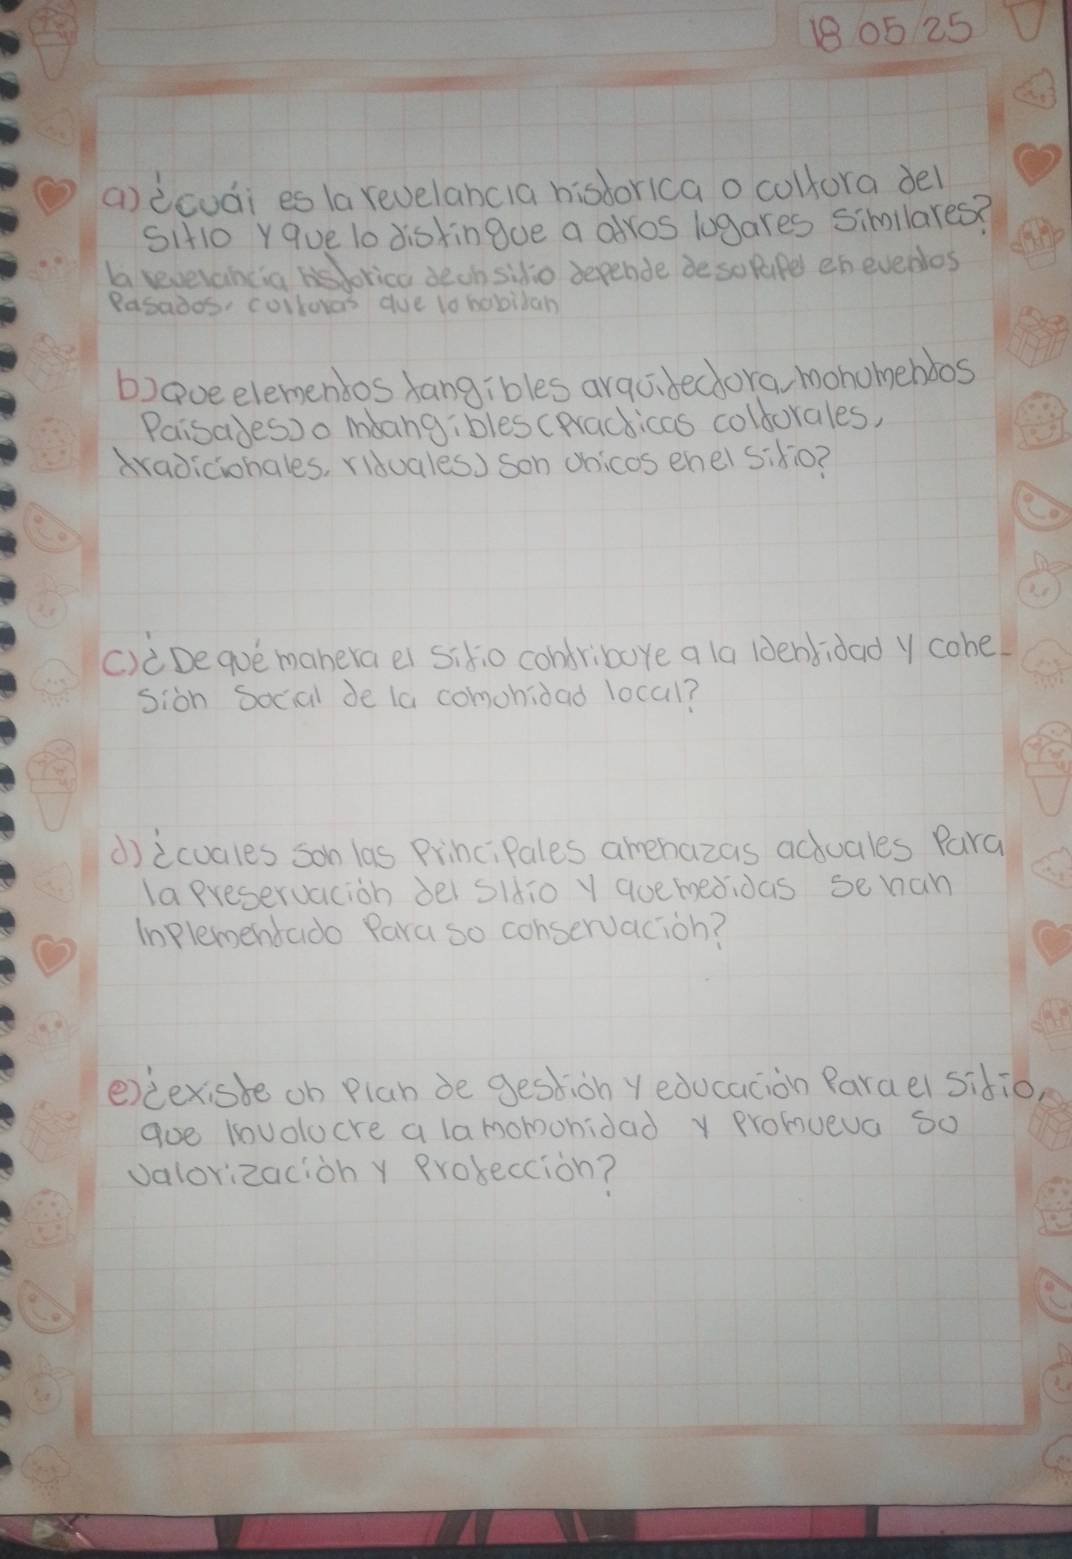 18/05/25
a) ¿cuái es la revelancia historica o coltora del
sitio y que lo distingue a otros lugares similares?
la revelancia historica de un sitio depende de so papel en eventos
Pasados, coltoras que lo habitan
b) Que elementos tangibles arquitectora, monomentos
Paisajes) o intangibles (Practicas coltorales,
tradicionales, rituales) son unicos en el sitio?
c) ¿De qué manera el sitio contriboye a la identidad y cohe-
sión Social de la comonidad local?
d) ¿cuales son las Principales amenazas actuales Para
la Preservación del sitio y que medidas se han
inplementado Para so conservación?
e) ¿existe on Plan de gestión y educación Para el sitio,
que involocre a la momonidad y Promueva so
valorización y Protección?